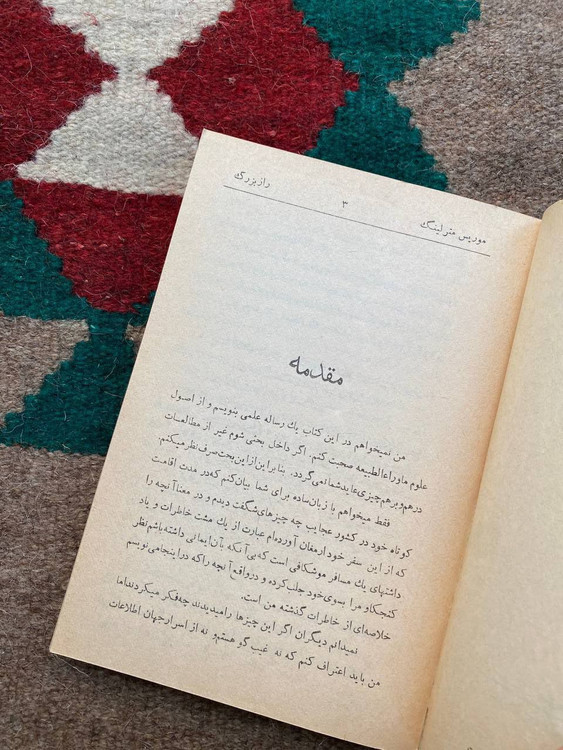 موریس مترلینگ ۳ رازبزرگ
مقدمه
من نمیخواهم در این کتاب یك رساله علمی بنویسم و از اصول
علوم ماوراءالطبیعه صحبت کنم. اگر داخل بحثی شوم غیر از مطالعات
درهم‌وبرهم‌چیزی‌عایدشما‌نمی‌گردد. بنابراین‌از‌این‌بحث‌صرف‌نظر‌میکنم.
فقط میخواهم با زبان‌ساده برای شما بیان‌کنم‌که‌در مدت اقامت
کوتاه خود در کشور عجایب چه چیزهای‌شگفت دیدم و در معنا‌آنچه را
که از این سفر خود‌ارمغان آورده‌ام عبارت از یك مشت خاطرات و یاد
داشتهای یك مسافر موشکافی است که‌بی‌آنکه بآن‌ایمانی داشته‌باشم‌نظر
کنجکاو مرا بسوی‌خود جلب‌کرده و درواقع آنچه را‌که در‌اینجا‌می‌نویسم
خلاصه‌ای از خاطرات گذشته من است.
نمیدانم دیگران اگر این چیزها را‌میدیدند چه‌فکر میکردند‌اما
من باید اعتراف کنم که نه غیب گو هستم‌و نه از اسرار‌جهان اطلاعات